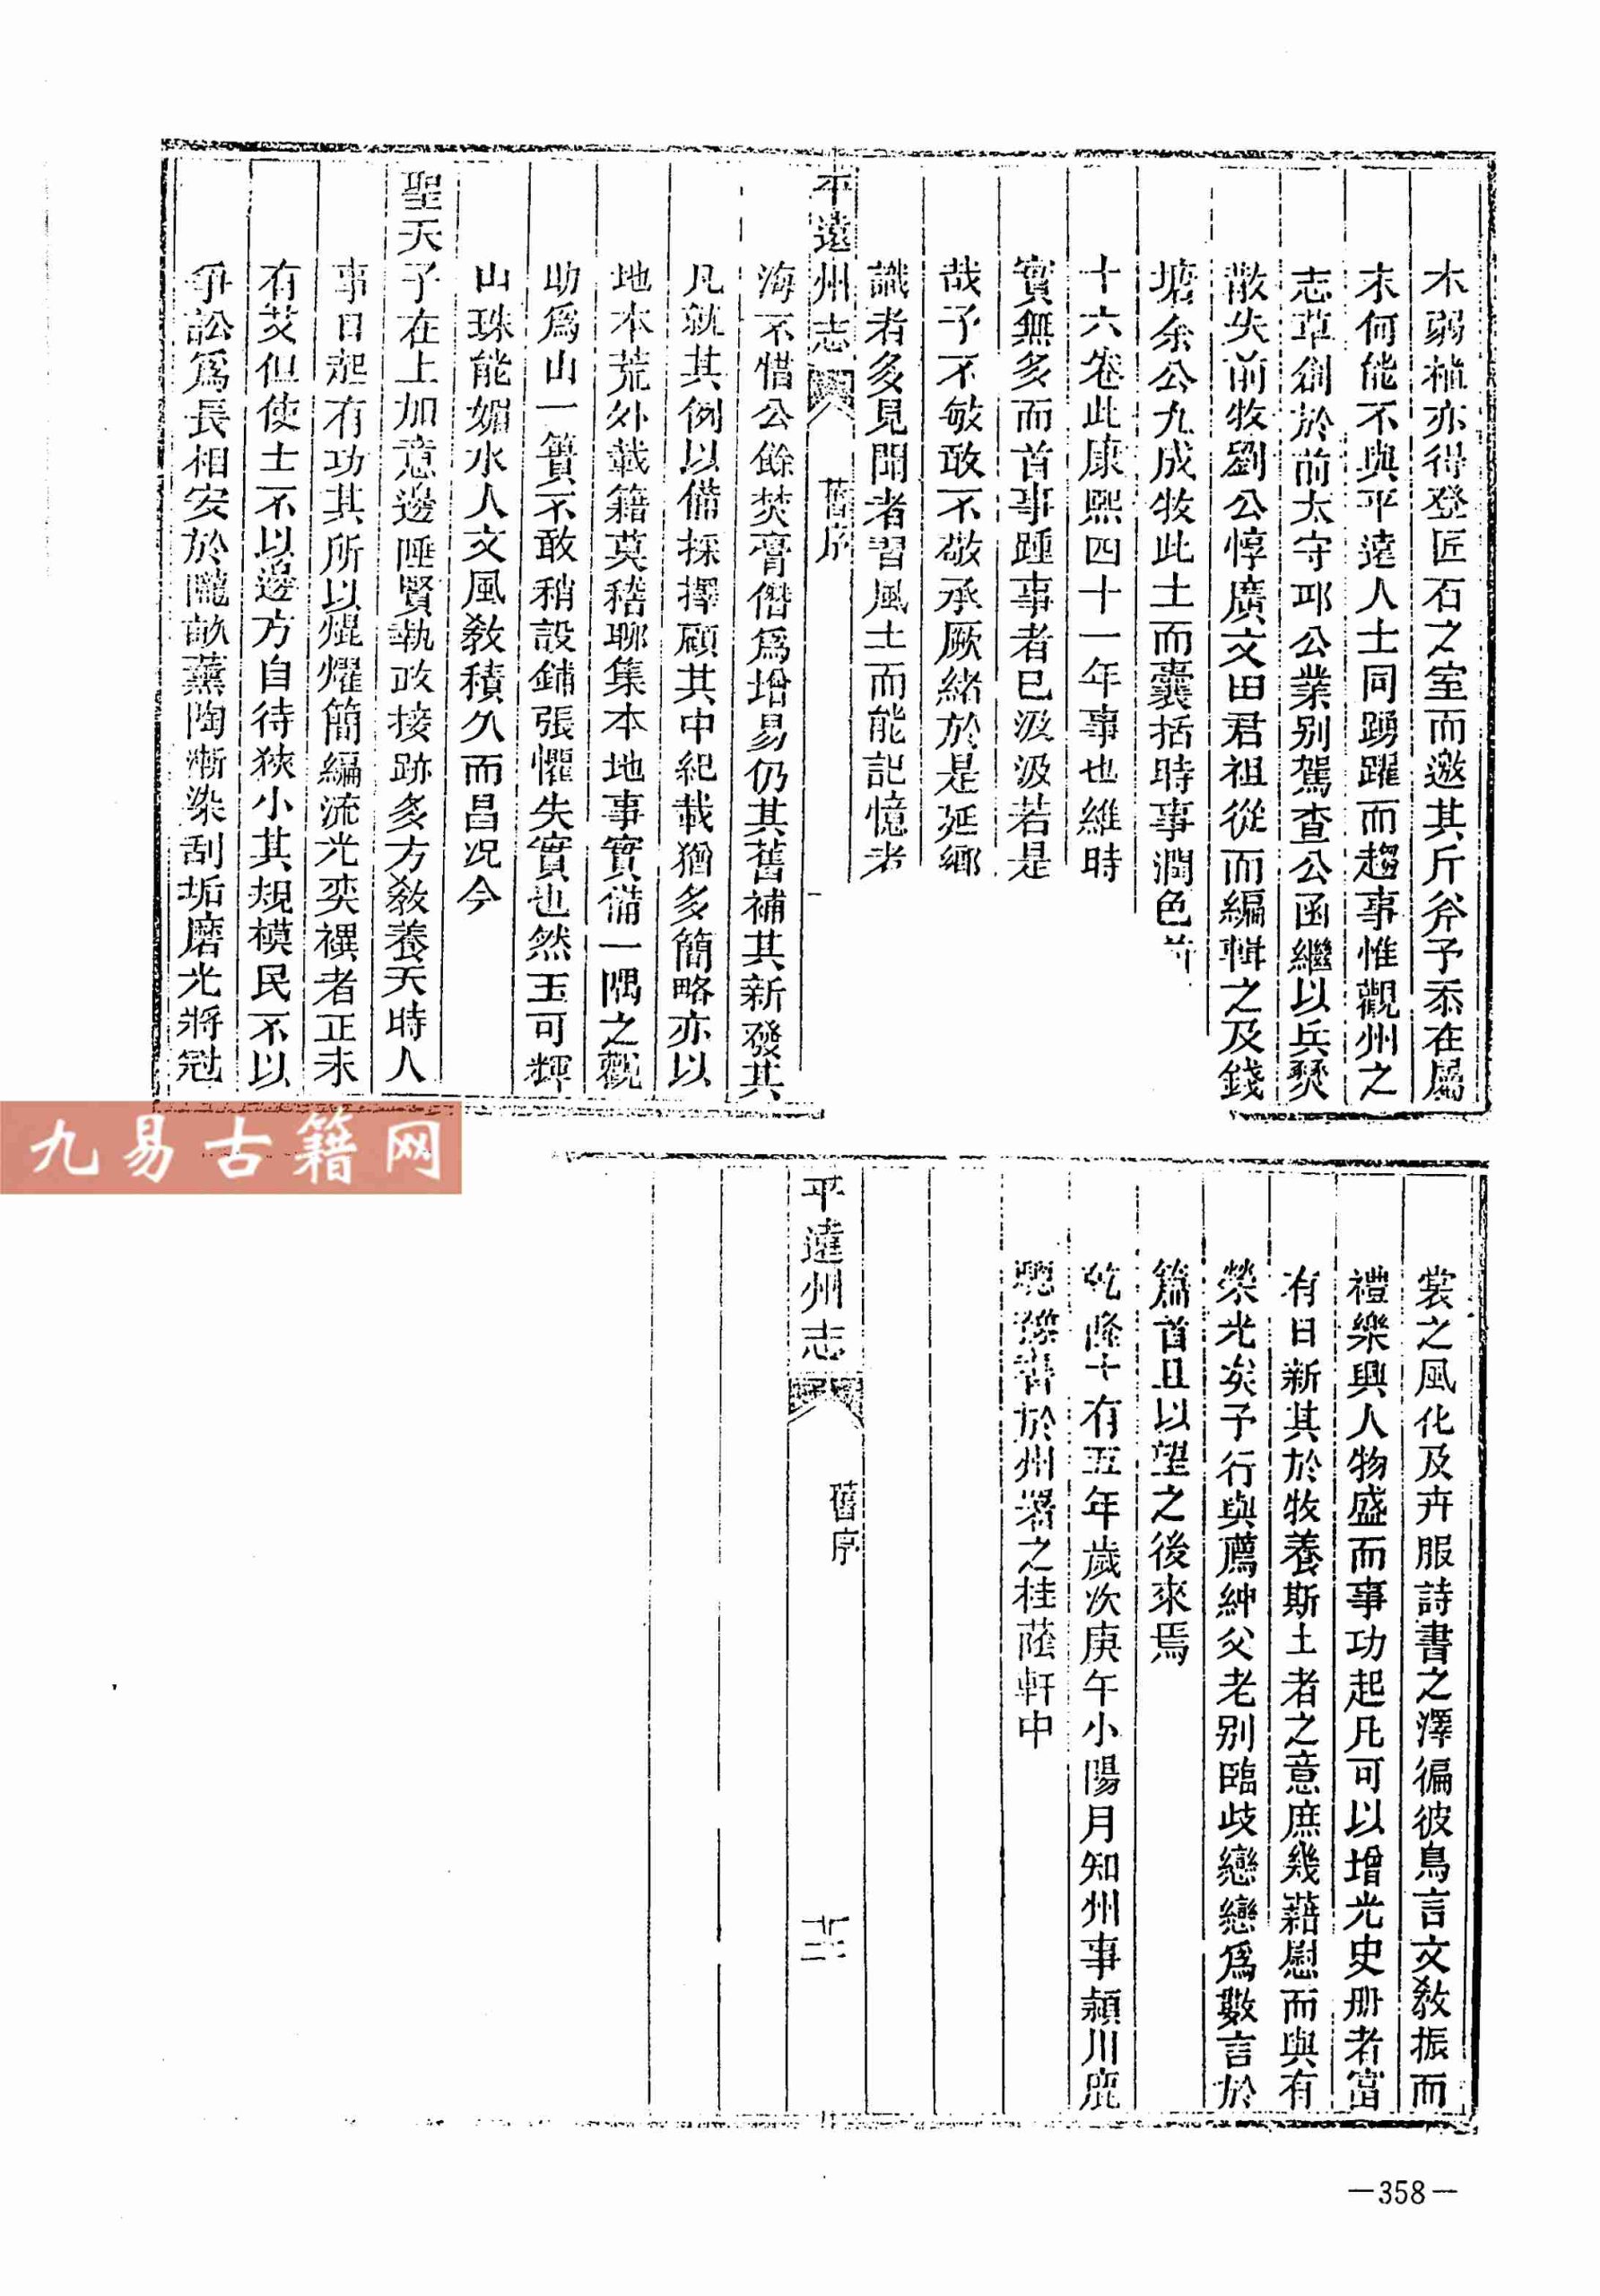 木弱植亦得登匠石之室而邀其斤斧予忝在屬
末何能不與平遠人士同踴躍而趨事惟觀州之
志草創於前太守邛公業别駕查公函繼以兵燹
散失前牧劉公惇廣文田君祖從而編輯之及錢
塘余公九成牧此土而囊括時事潤色
十六卷此康熙四十一年事也維時
實無多而首事踵事者已汲汲若是
哉予不敏敢不敬承厥緒於是延鄉
識者多見聞者習風土而能記憶者
平遠州志
舊序
海不惜公餘焚膏僭爲增易仍其舊補其新發其
凡就其例以備採擇顧其中紀載猶多簡略亦以
地本荒外載籍莫稽聊集本地事實備一隅之觀
助爲山一簣不敢稍設鋪張懼失實也然玉可輝
山珠能媚水人文風敎積久而昌况今
聖天子在上加意邊陲賢執政接跡多方敎養天時人
事日起有功其所以焜燿簡編流光奕禩者正未
有艾但使士不以邊方自待狹小其規模民不以
爭訟爲長相安於隴畝薰陶漸染刮垢磨光將冠
裳之風化及卉服詩書之澤徧彼鳥言文敎振而
禮樂興人物盛而事功起凡可以增光史册者富
有日新其於牧養斯土者之意庶幾藉慰而與有
榮光矣予行與薦紳父老别臨歧戀戀爲數言於
篇首且以望之後來焉
乾隆十有五年歲次庚午小陽月知州事頴川鹿
聰豫書於州署之桂蔭軒中
平遠州志
舊序
—358—
九易古籍网